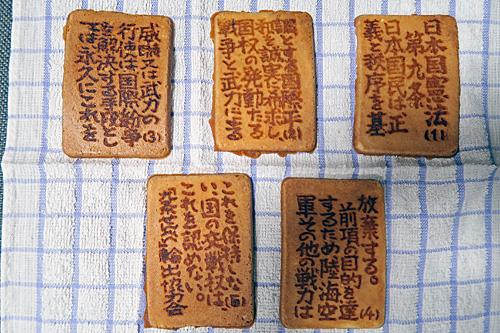 日本国憲法(1)
第九条
日本国民は正
義と秩序を基
調とする国際平(2)
和を誠実に希求し
国権の発動たる
戦争と武力による
威嚇又は武力の(3)
行使は国際紛争
を解決する手段とし
ては永久にこれを
放棄する。(4)
前項の目的を達
するため陸海空
軍その他の戦力は
これを保持しな(5)
い。国の交戦権は
これを認めない。